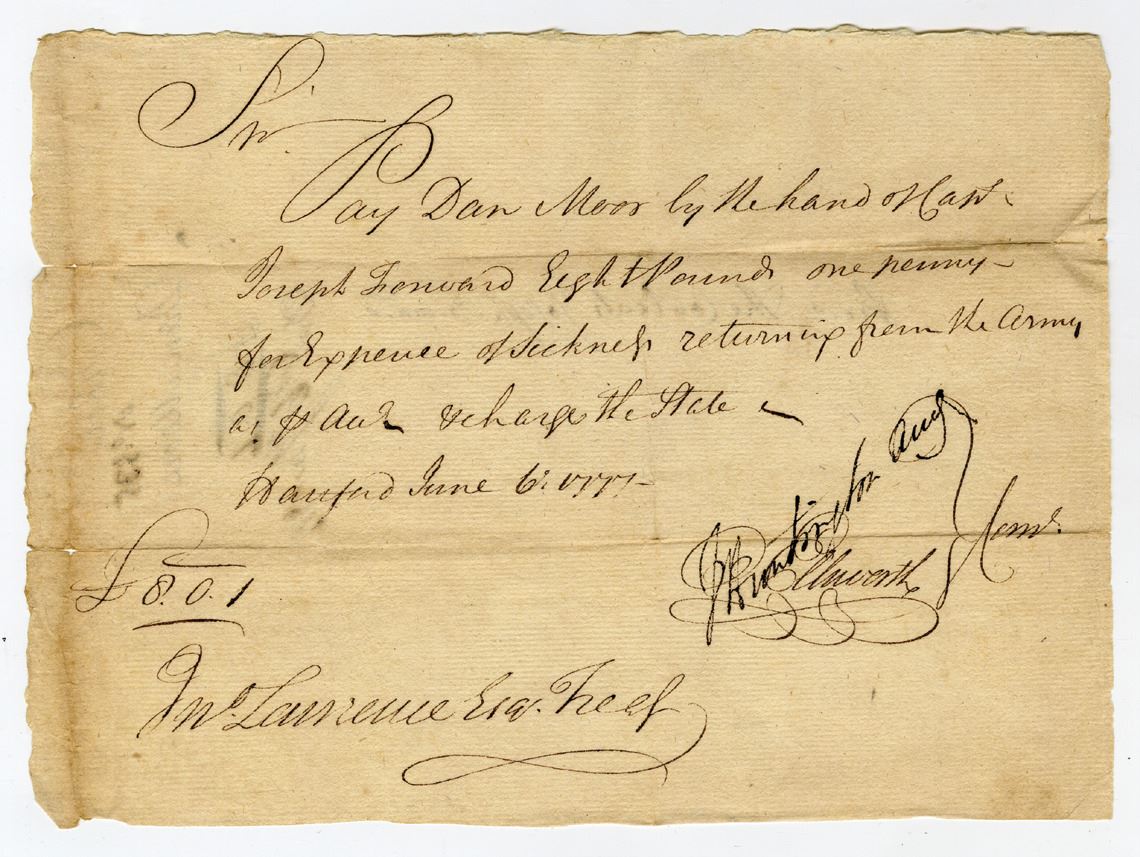 Sir
Pay Dan Moor by the hand of Capt
Joseph Forward Eight Pounds one penny
for Expence of Sickness returning from the Army
as Pr Acct & charge the State
Hartford June 6: 1777
£ 8.0.1
J Huntington Aud
O Ellsworth
Comte
Jno Lawrence Esqr. Treasr